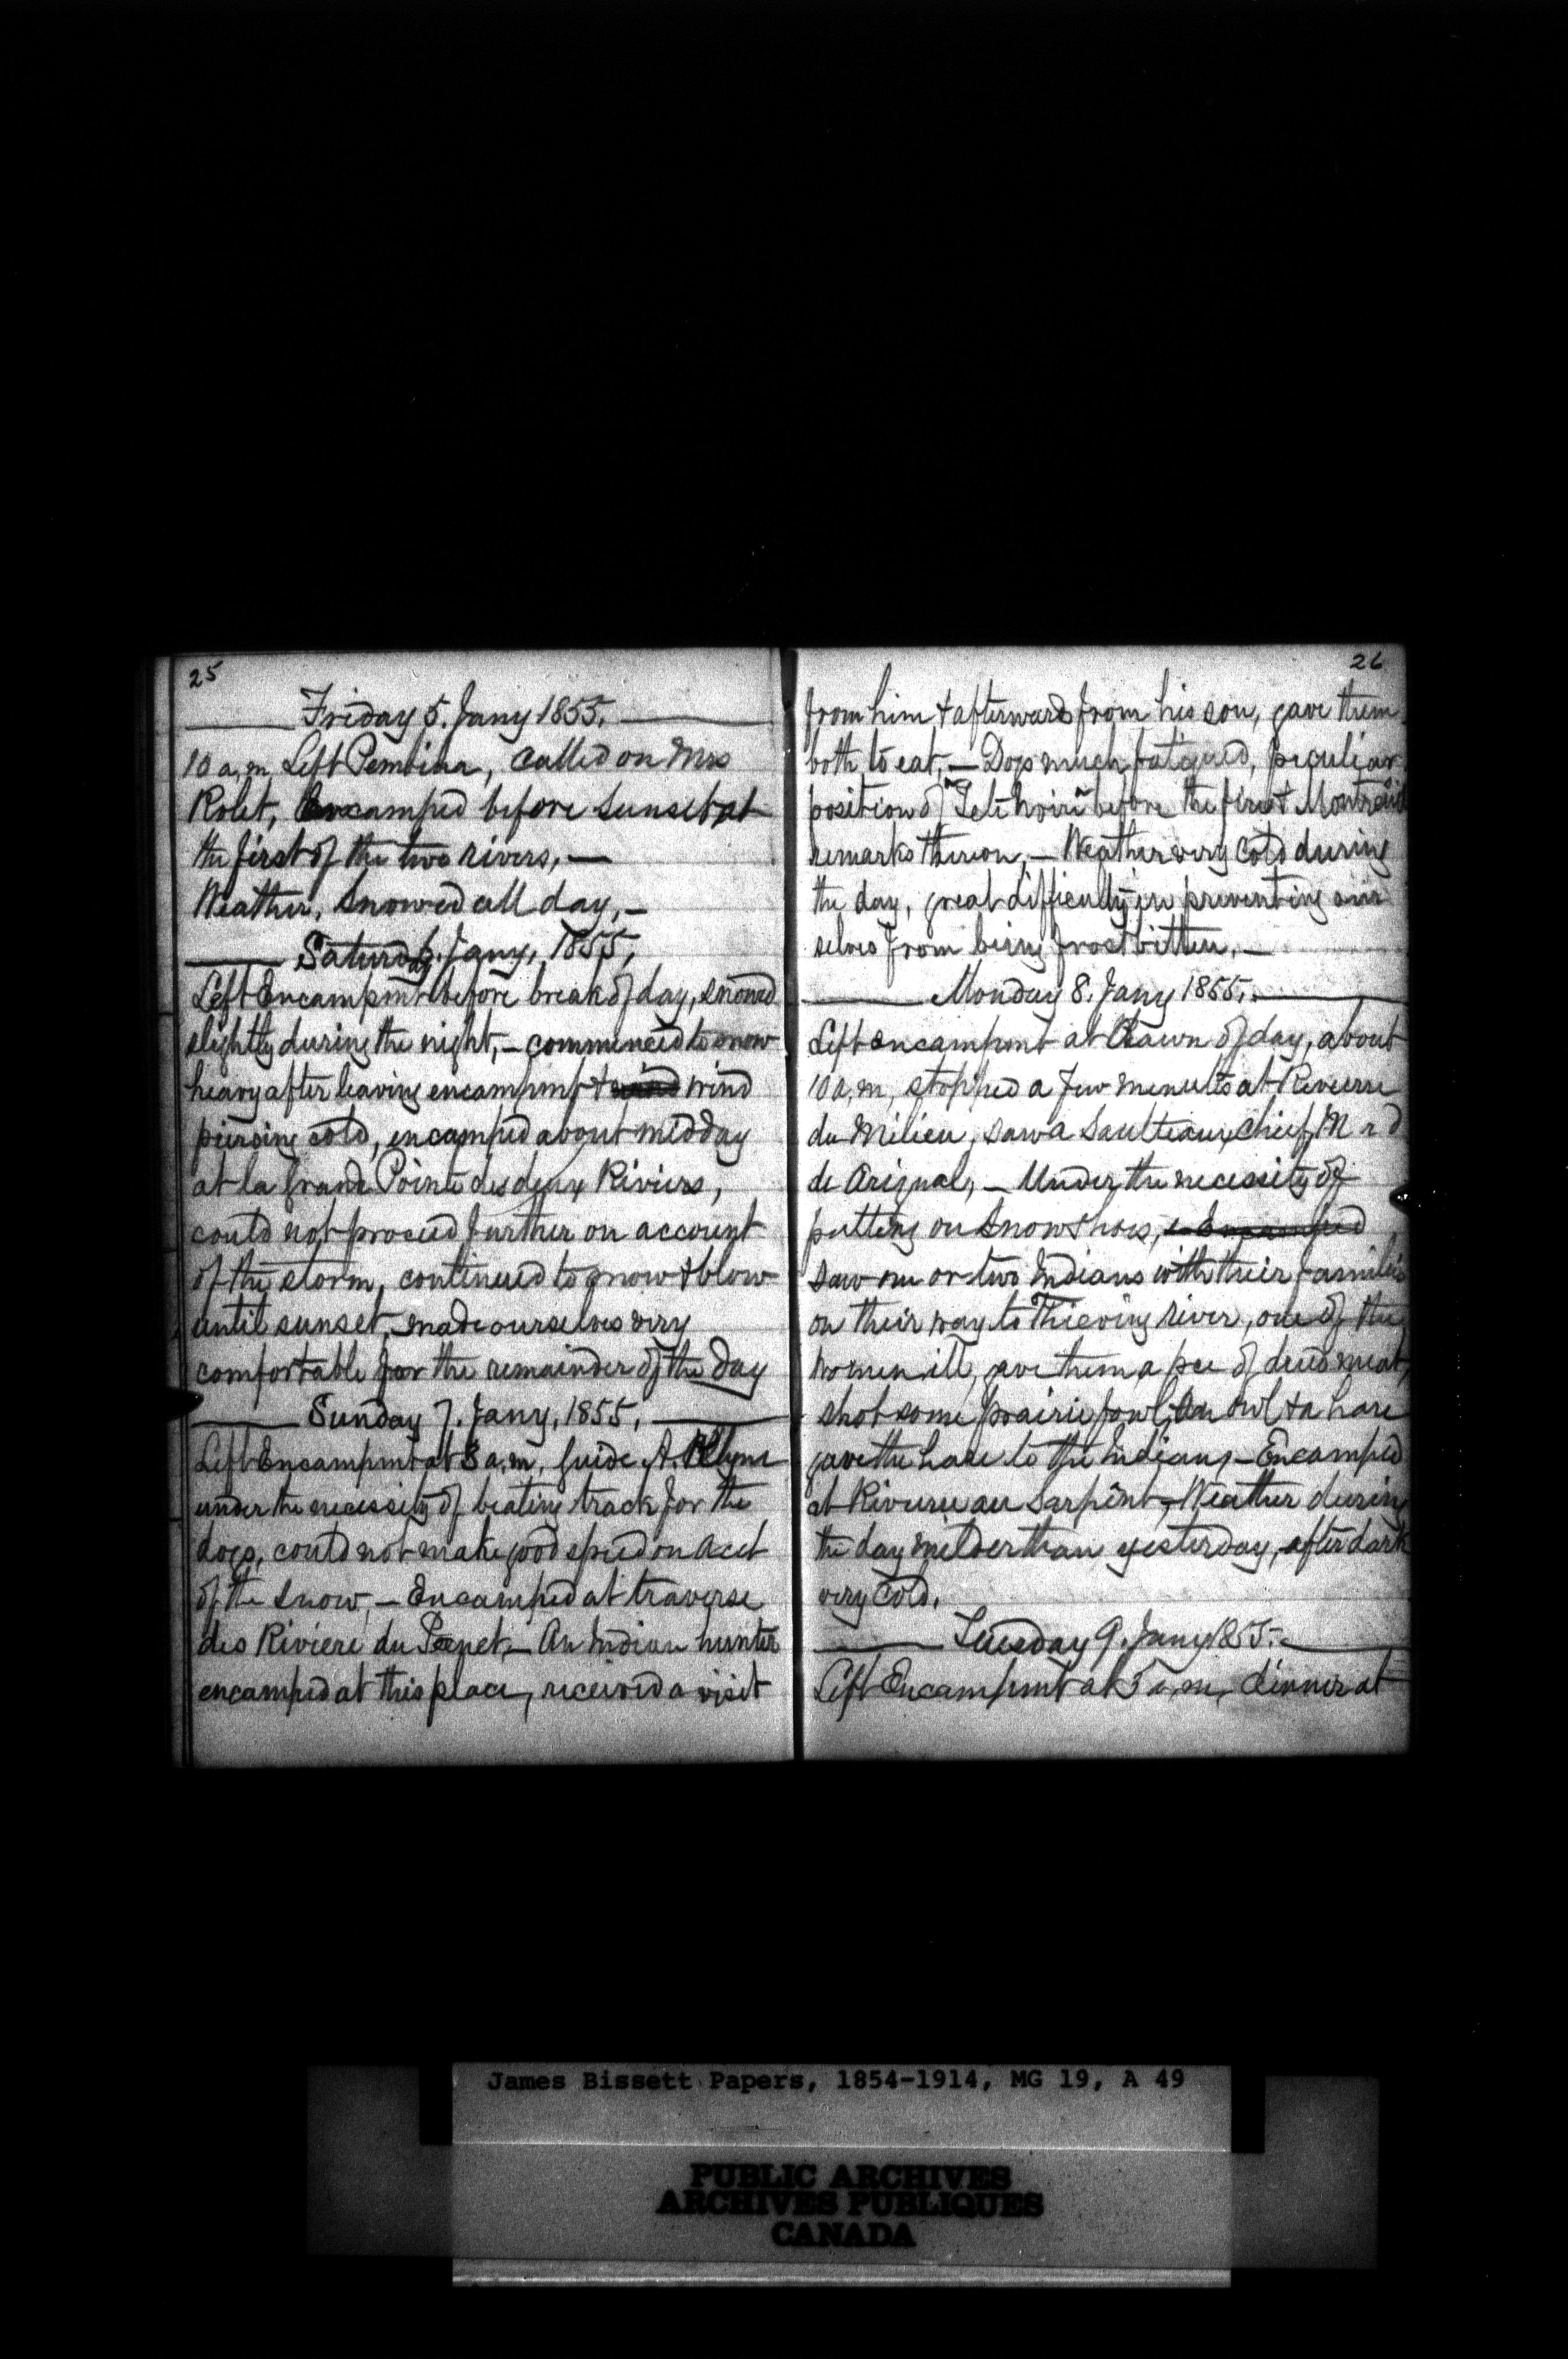 25
Friday 5. Jany 1855.
10 a.m. Left Pembina, called on Mrs
Rolet, Encamped before sunset at
the first of the two rivers, —
Weather, Snowed all day, —
Saturday 6. Jany, 1855,
Left Encampmt before break of day, snowed
slightly during the night, — commenced to snow
heavy after leaving encampmt & wind wind
piercing cold, encamped about midday
at la grand Pointe des deux Riviers,
could not proceed further on account
of the storm, continued to snow & blow
until sunset, made ourselves very
comfortable for the remainder of the day
Sunday 7. Jany, 1855.
Left Encampmt at 3 a.m, Guide A.
under the necessity of beating track for the
dogs, could not make good speed on acct
of the snow, — Encamped at traverse
des Riviere du — An Indian hunter
encamped at this place, received a visit
26
from him & afterwards from his son, gave them
both to eat, — Dogs much fatigued, peculiar
position of "Tete noire" before the fire &
remarks thereon, — Weather very cold during
the day, great difficulty in preventing our
selves from being frostbitten, —
Monday 8. Jany 1855.
Left encampmt at dawn of day, about
10 a,m, stopped a few minutes at Rivierre
du Milieu, saw a Saulteaux Chief,
de Orignal, — Under the necessity of
putting on Snowshoes, & Encamped
saw one or two Indians with their families
on their way to Thieving river, one of the
women ill, gave them a pce of dried meat,
shot some prairie fowl, an owl & a hare
gave the hare to the Indians, — Encamped
at Rivierre au Sarpint, — Weather during
the day milder than yesterday, after dark
very cold.
Tuesday 9. Jany 1855.
Left Encampmt at 5 a,m, dinner at
James Bissett Papers, 1854-1914, MG 19, A 49
PUBLIC ARCHIVES
ARCHIVES PUBLIQUES
CANADA